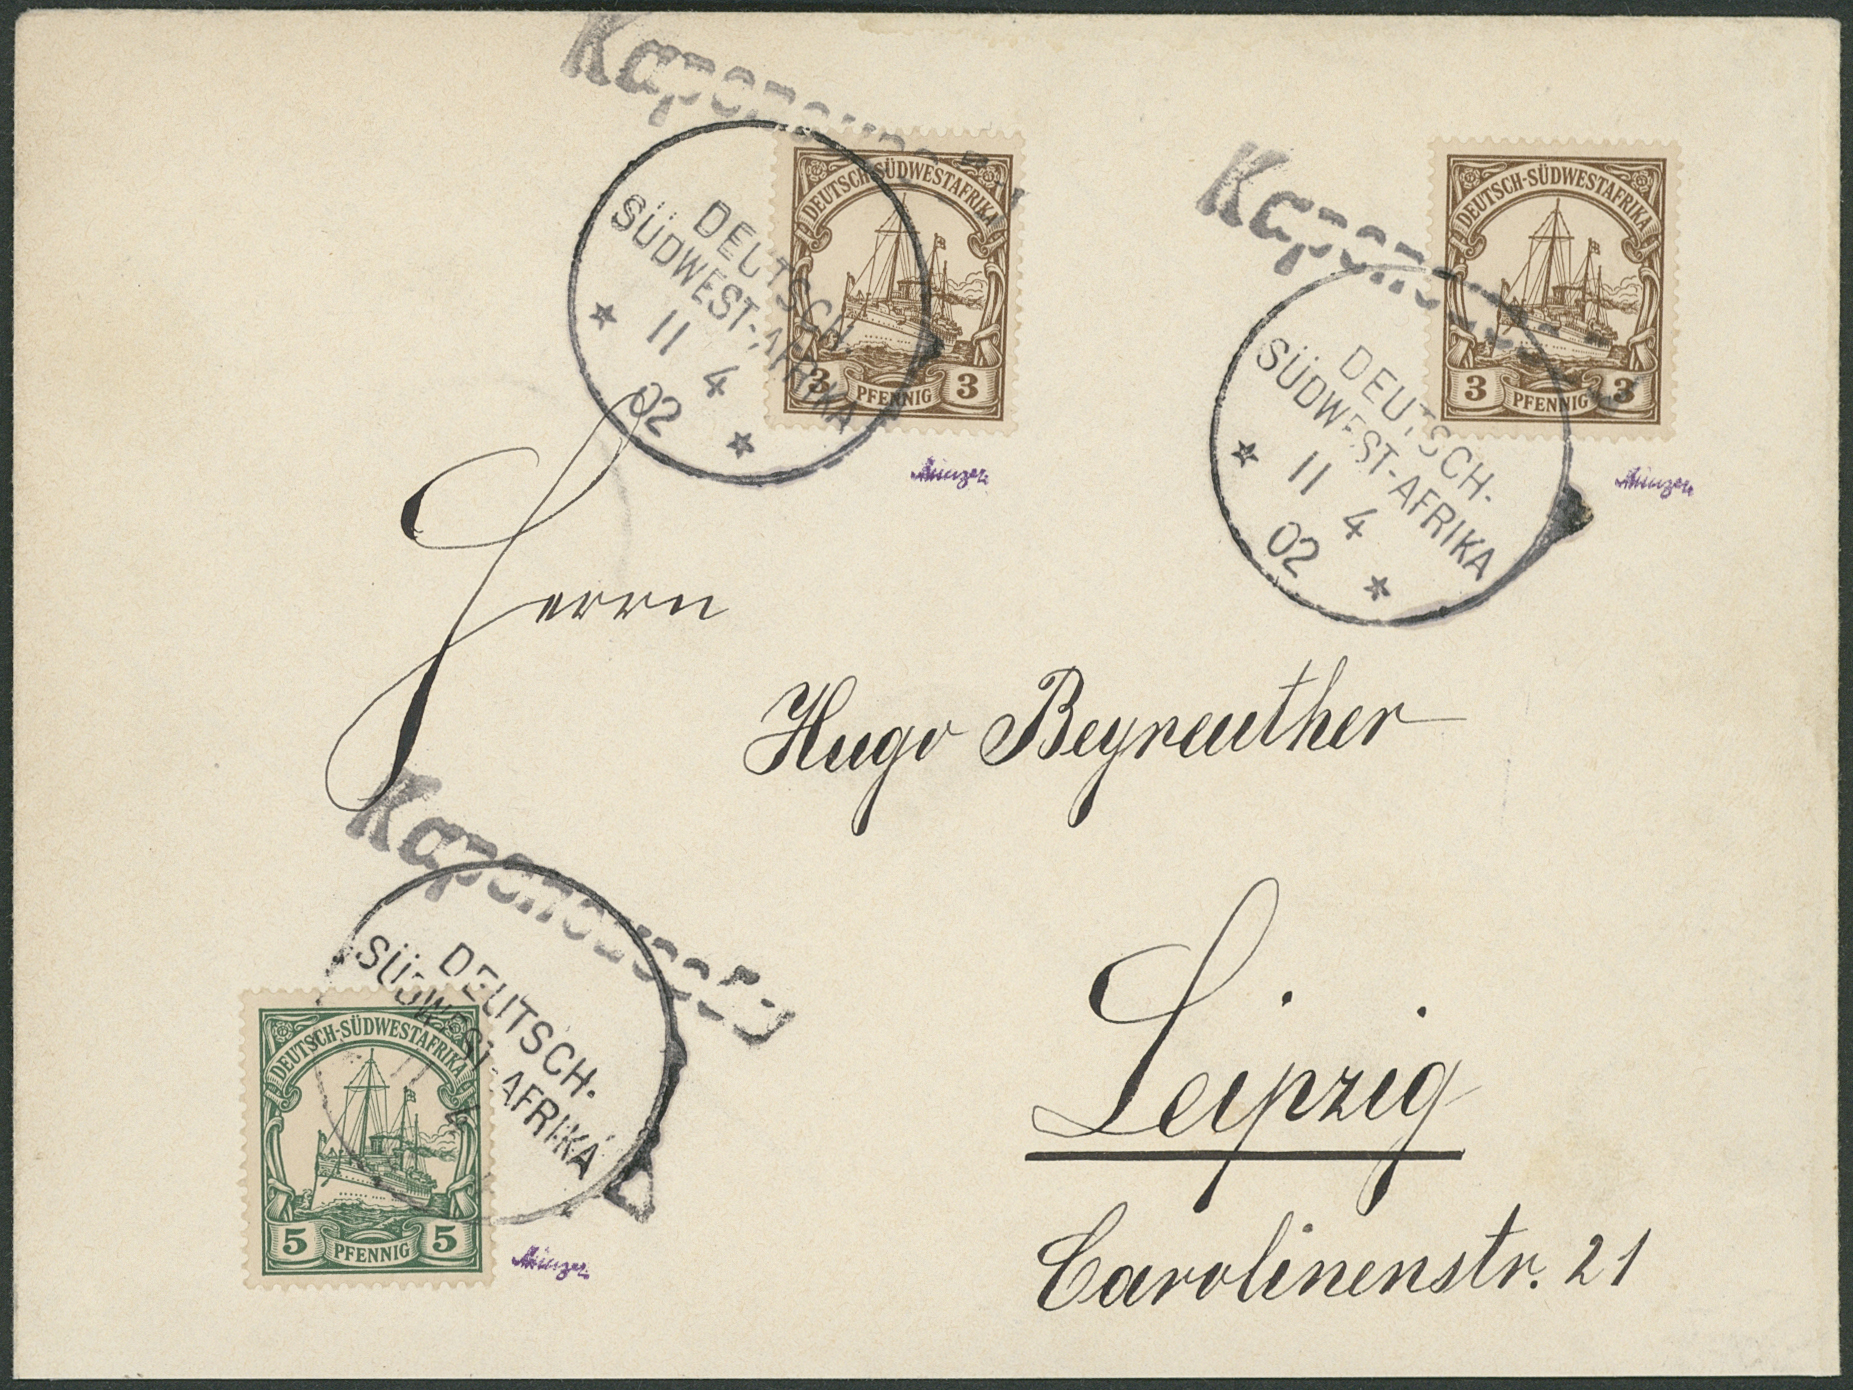 DEUTSCH-SÜDWESTAFRIKA
3 PFENNIG 3
DEUTSCH-
SÜDWEST-AFRIKA
11 4
02
DEUTSCH-SÜDWESTAFRIKA
3 PFENNIG 3
DEUTSCH-
SÜDWEST-AFRIKA
11 4
02
Herrn
Hugo Beyreuther
Leipzig
Carolinenstr. 21
DEUTSCH-
SÜDWEST-AFRIKA
11 4
DEUTSCH-SÜDWESTAFRIKA
5 PFENNIG 5